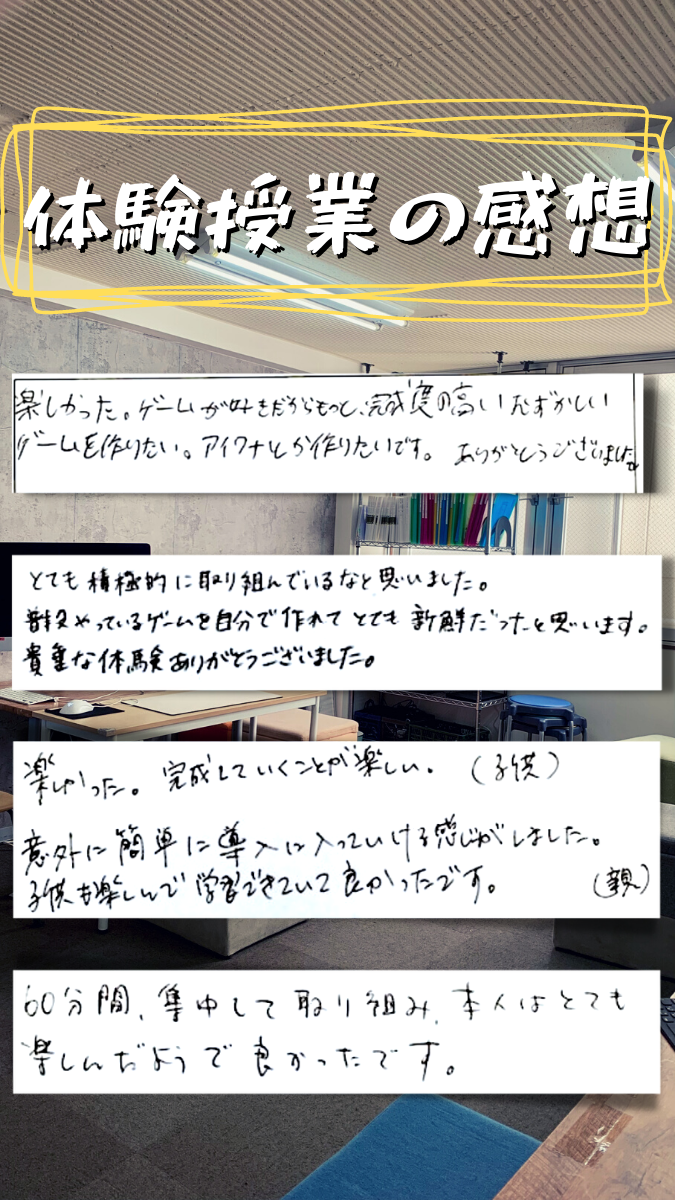 体験授業の感想
楽しかった。ゲームが好きだからもっと、完成度の高いむずかしい
ゲームを作りたい。アイワナとか作りたいです。 ありがとうございました。
とても積極的に取り組んでいるなと思いました。
普段やっているゲームを自分で作れてとても新鮮だったと思います。
貴重な体験ありがとうございました。
楽しかった。完成していくことが楽しい。(子供)
意外に簡単に導入に入っていける感じがしました。
子供も楽しんで学習できていて良かったです。 (親)
60分間、集中して取り組み、本人はとても
楽しんだようで良かったです。